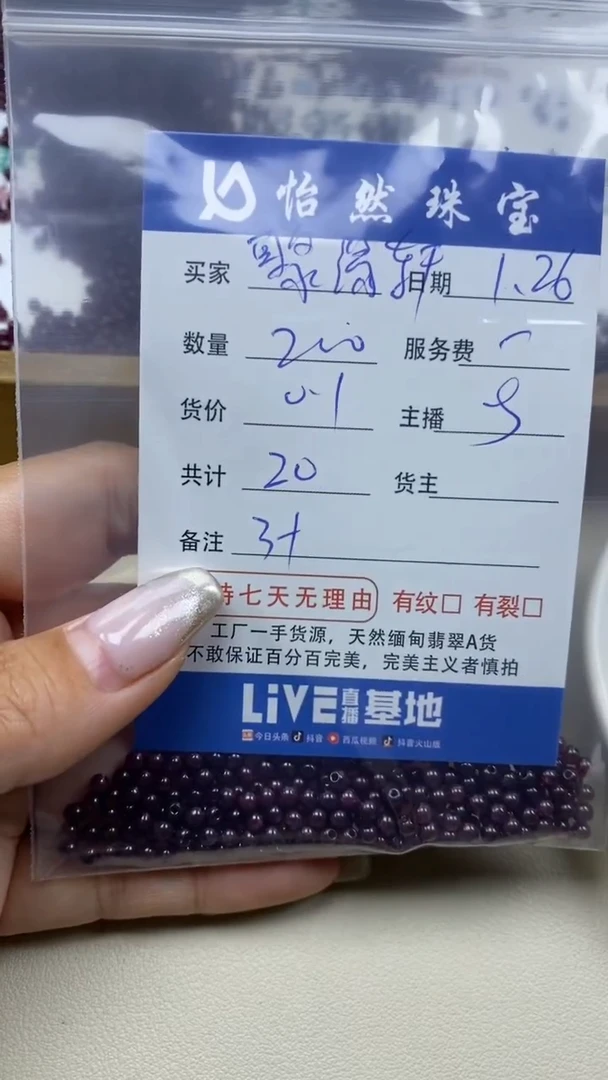 怡然珠宝
买家 日期 1.26
数量 200 服务费
货价 0.1 主播
共计 20 货主
备注 3+
持七天无理由 有纹□ 有裂□
工厂一手货源，天然缅甸翡翠A货
不敢保证百分百完美，完美主义者慎拍
LiVE直播基地
今日头条 抖音 西瓜视频 抖音火山版